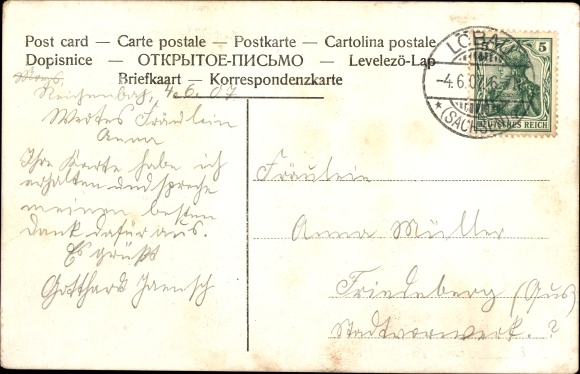 Post card — Carte postale — Postkarte — Cartolina postale
Dopisnice — ОТКРЫТОЕ-ПИСЬМО — Levelező-Lap
Briefkaart — Korrespondenzkarte
LÖBAU
-4.6.0
* (SACHSEN)
5
DEUTSCHES REICH
Reichenbach, 4.6.07
Wertes Fräulein
Anna
Ihre Karte habe ich
erhalten und spreche
meinen besten
Dank dafür aus.
Es grüßt
Gotthard Jaensch
Fräulein
Anna Müller
Friedeberg (Aus)
Stadtvorwerk. ?